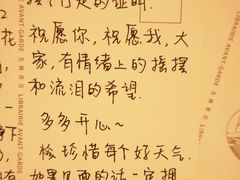 祝愿你,祝愿我,大
家,有情绪上的摇摆
和流泪的希望.
多多开心~
检珍惜每个好天气.
如果见面的话一定拥
LIBRAIRIE AVANT-GARDE
先锋书店
LIBRAIRIE AVANT-GARDE
先锋书店